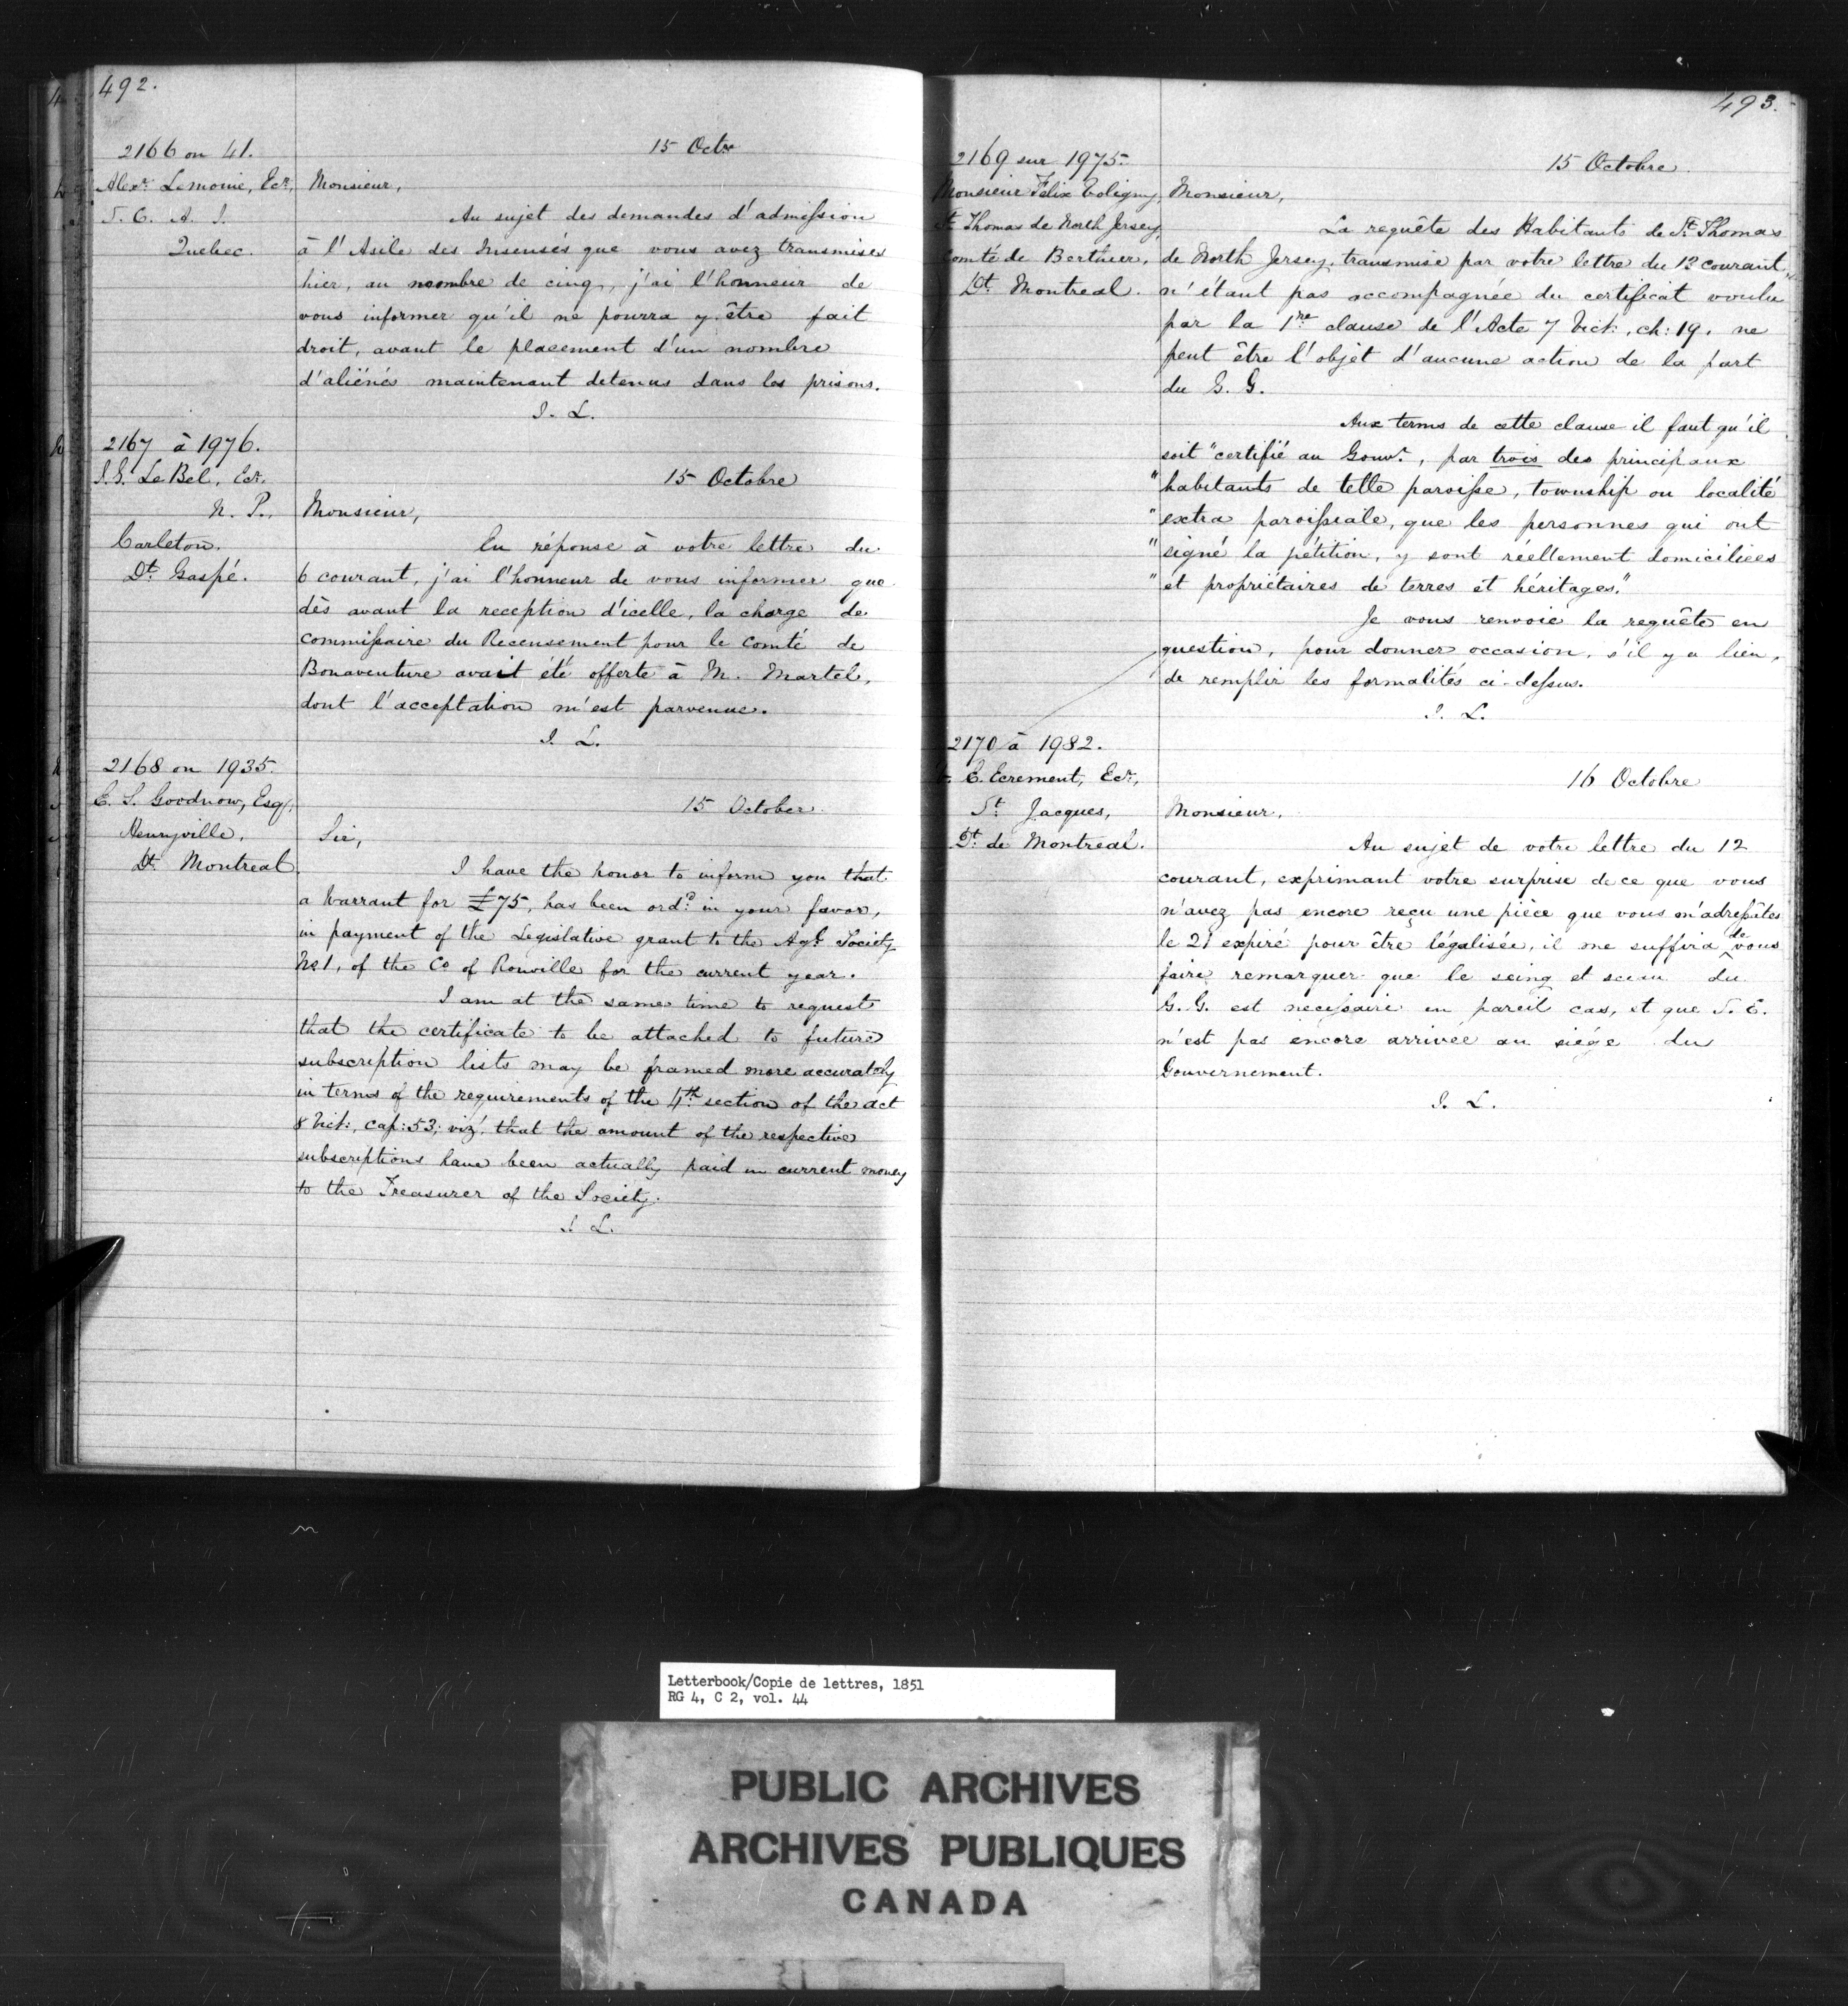 492.
2166 on 41.
Alexr. Lemoine, Ecr,
S. C. A. I.
Quebec.
15 Octre
Monsieur,
Au sujet des demandes d'admission
à l'Asile des Insensés que vous avez transmises
hier, au nombre de cinq, j'ai l'honneur de
vous informer qu'il ne pourra y être fait
droit, avant le placement d'un nombre
d'aliénés maintenant detenus dans les prisons.
J. L.
2167 à 1976.
J. G. Le Bel, Ecr.
N. P.
Carleton.
Dt. Gaspé.
15 Octobre
Monsieur,
En réponse à votre lettre du
6 courant, j'ai l'honneur de vous informer que
dès avant la reception d'icelle, la charge de
Commissaire du Recensement pour le Comté de
Bonaventure avait été offerte à M. Martel,
dont l'acceptation m'est parvenue.
J. L.
2168 on 1935.
E. S. Goodnow, Esq.,
Henryville,
Dt. Montreal
15 October
Sir,
I have the honor to inform you that
a Warrant for £75, has been ordd. in your favor,
in payment of the Legislative grant to the Agl. Society
No 1, of the Co of Rouville for the current year.
I am at the same time to request
that the certificate to be attached to future
subscription lists may be framed more accurately
in terms of the requirements of the 4th. section of the act
8 Vict:, cap: 53; viz', that the amount of the respective
subscriptions have been actually paid in current money
to the Treasurer of the Society.
J. L.
493.
2169 sur 1975.
Monsieur Félix Toligny,
St Thomas de North Jersey,
Comté de Berthier,
Dt. Montreal.
15 Octobre
Monsieur,
La requête des Habitants de St. Thomas
de North Jersey, transmise par votre lettre du 13 courant,
n'étant pas accompagnée du certificat voulu
par la 1re clause de l'Acte 7 Vict:, ch: 19. ne
peut être l'objet d'aucune action de la part
du G. G.
Aux terms de cette clause il faut qu'il
soit "certifié au Gouvr., par trois des principaux
"habitants de telle paroisse, township ou localité
"extra paroissiale, que les personnes qui ont
"signé la pétition, y sont réellement domiciliées
"et propriétaires de terres et héritages."
Je vous renvoie la requête en
question, pour donner occasion, s'il y a lieu,
de remplir les formalités ci-dessus.
J. L.
2170 à 1982.
C. Ecrement, Ecr,
St. Jacques,
Dt. de Montreal.
16 Octobre
Monsieur,
Au sujet de votre lettre du 12
courant, exprimant votre surprise de ce que vous
n'avez pas encore reçu une pièce que vous m'adressâtes
le 21 expiré pour être légalisée, il me suffira de vous
faire remarquer que le seing et sceau du
G. G. est necessaire en pareil cas, et que S. E.
n'est pas encore arrivée au siége du
Gouvernement.
J. L.
Letterbook/Copie de lettres, 1851
RG 4, C 2, vol. 44
PUBLIC ARCHIVES
ARCHIVES PUBLIQUES
CANADA